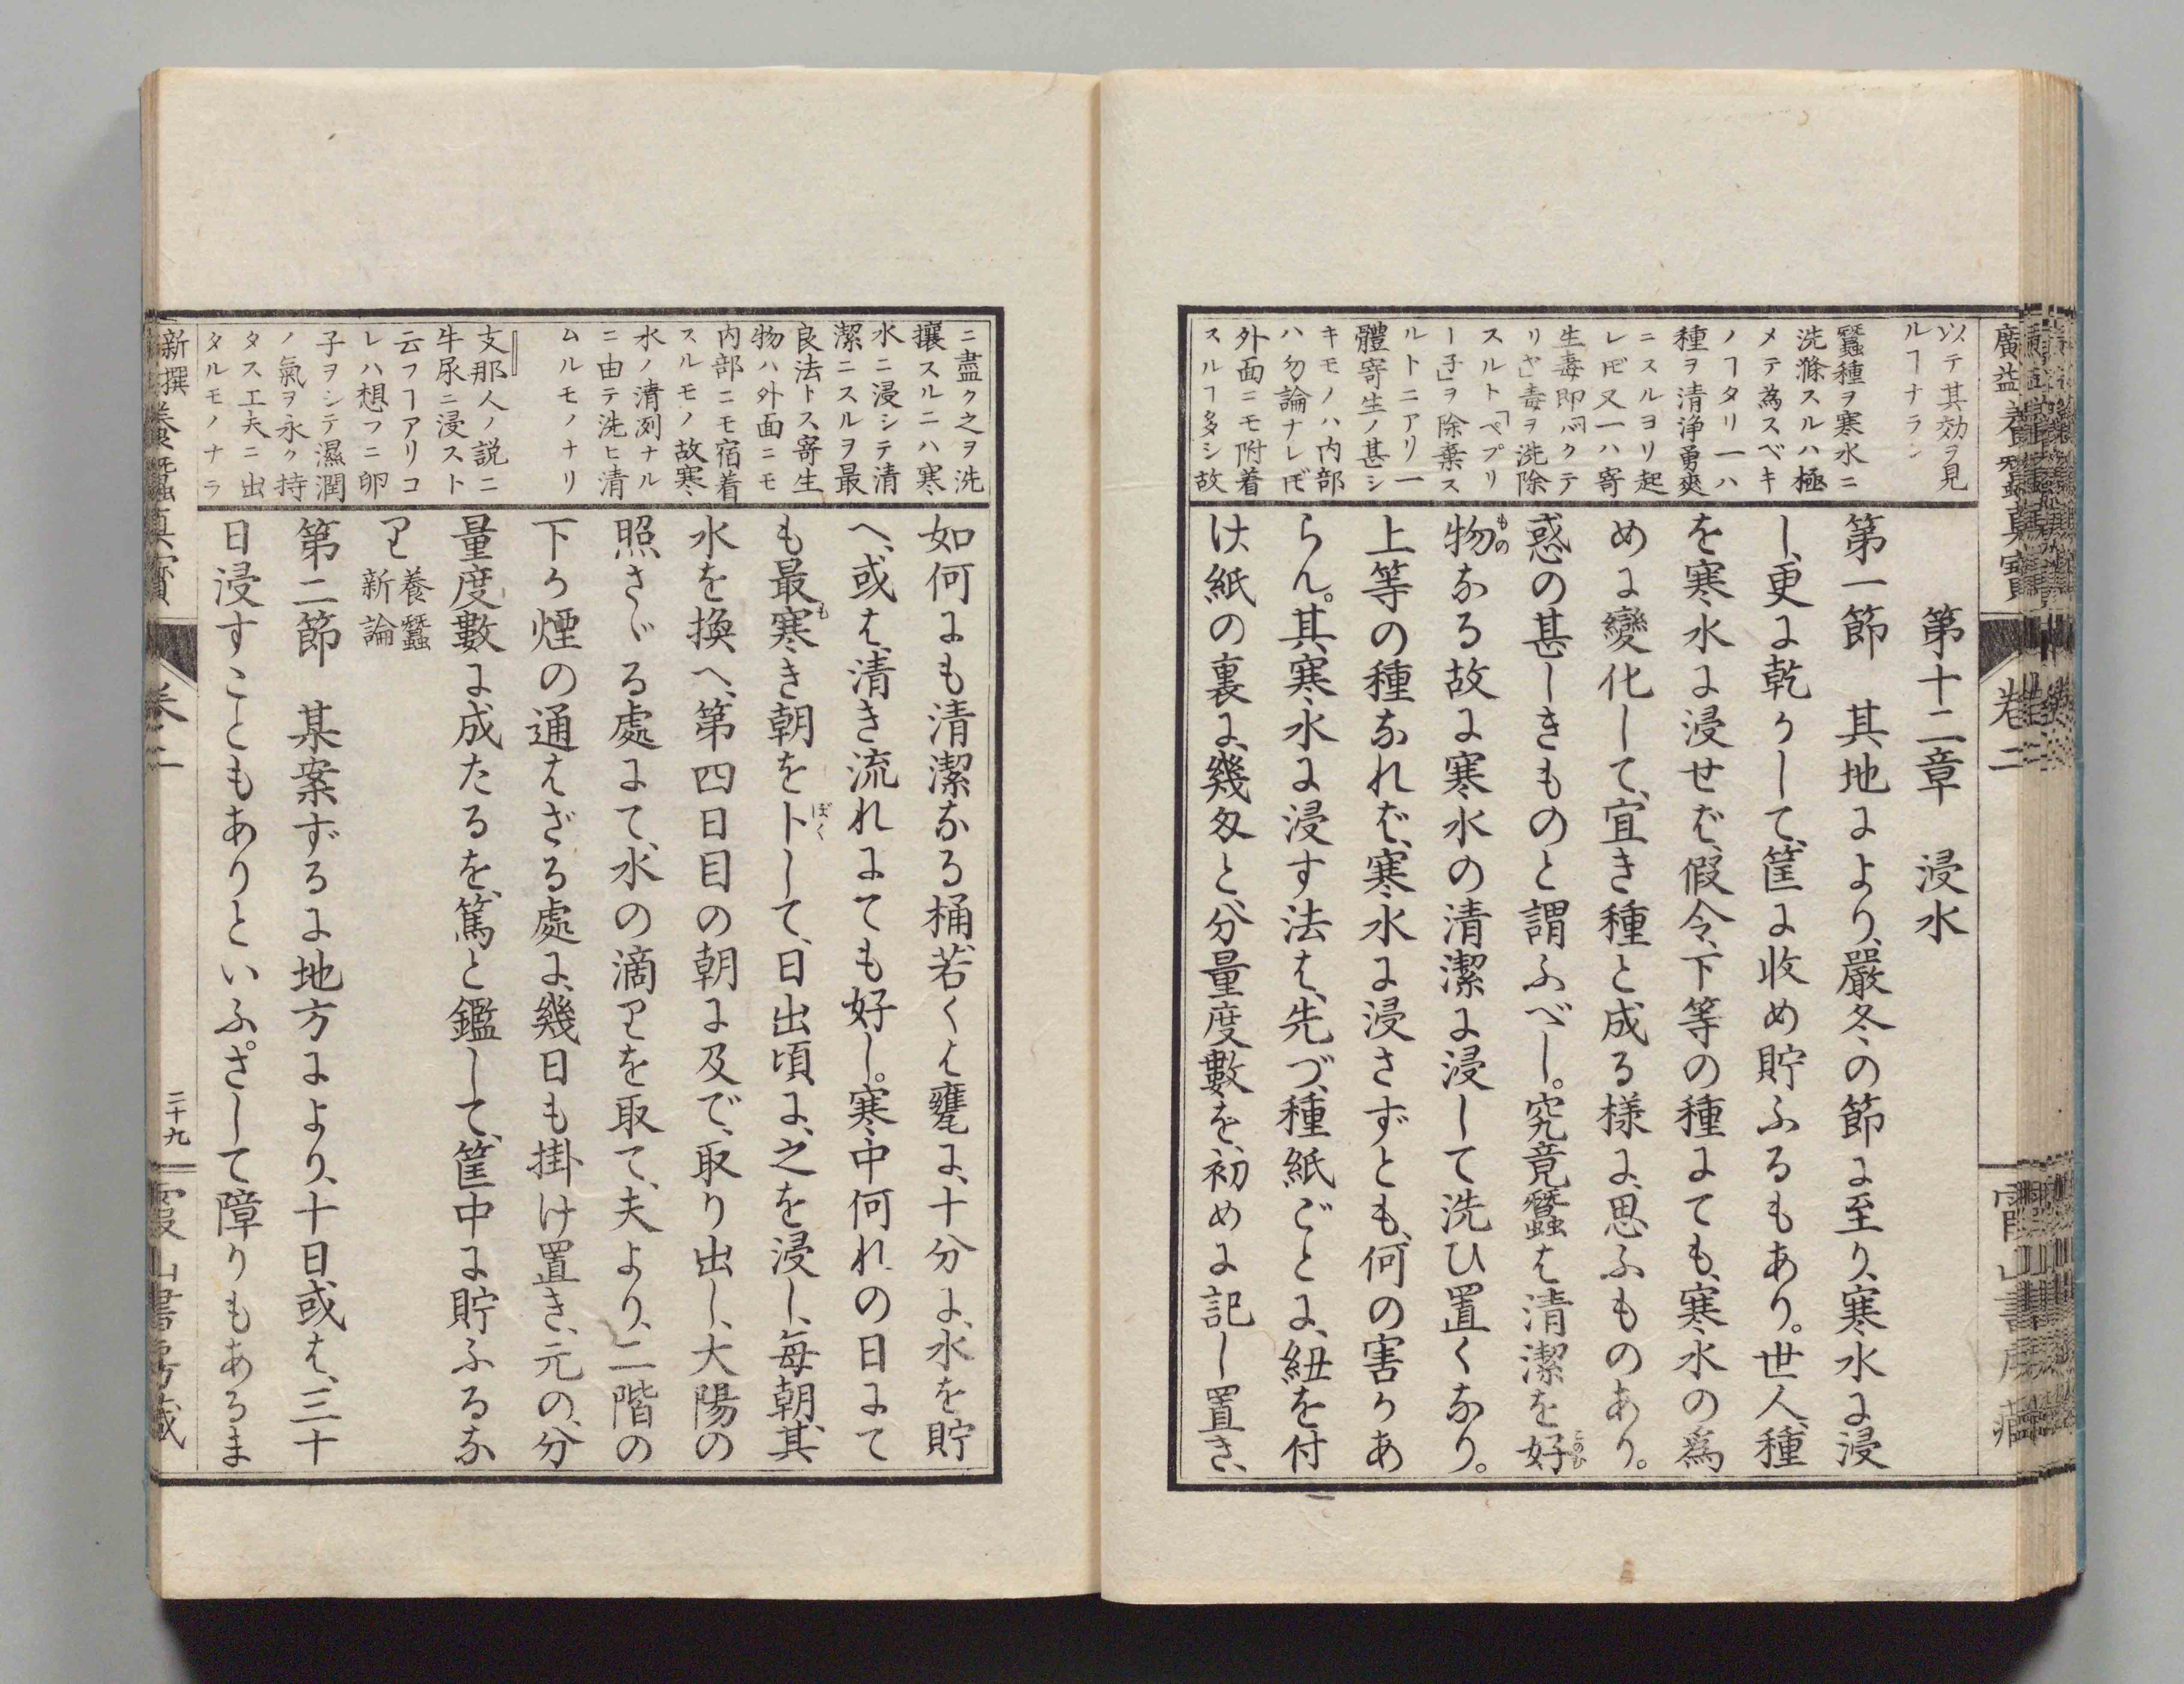 廣益養蠶真寶
卷二
以テ其効ヲ見
ルヿナラン
蠶種ヲ寒水ニ
洗滌スルハ極
メテ為スベキ
ノヿタリ一ハ
種ヲ清浄勇爽
ニスルヨリ起
レ𪜈又一ハ寄
生毒即「バクテ
リヤ」毒ヲ洗除
スルト「ペプリ
ー子」ヲ除棄ス
ルトニアリ一
體寄生ノ甚シ
キモノハ内部
ハ勿論ナレ𪜈
外面ニモ附着
スルヿ多シ故
第十二章　浸水
第一節　其地により、嚴冬の節に至り、寒水に浸
し、更に乾かして、筐に收め貯ふるもあり。世人、種
を寒水に浸せば、假令、下等の種にても、寒水の爲
めに變化して、宜き種と成る様に、思ふものあり。
惑の甚しきものと謂ふべし。究竟蠶は清潔を好
物なる故に寒水の清潔に浸して洗ひ置くなり。
上等の種なれば、寒水に浸さずとも、何の害かあ
らん。其寒水に浸す法は、先づ、種紙ごとに、紐を付
け、紙の裏に、幾匁と、分量度數を、初めに記し置き、
ニ盡ク之ヲ洗
攘スルニハ寒
水ニ浸シテ清
潔ニスルヲ最
良法トス寄生
物ハ外面ニモ
内部ニモ宿着
スルモノ故寒
水ノ清冽ナル
ニ由テ洗ヒ清
ムルモノナリ
支那人ノ説ニ
牛尿ニ浸スト
云フヿアリコ
レハ想フニ卵
子ヲシテ濕潤
ノ氣ヲ永ク持
タス工夫ニ出
タルモノナラ
如何にも清潔なる桶若くは甕に、十分に、水を貯
へ、或は、清き流れにても好し。寒中何れの日にて
も最寒き朝を卜して、日出頃に、之を浸し、毎朝、其
水を換へ、第四日目の朝に及で、取り出し、大陽の
照さゞる處にて、水の滴りを取て、夫より、二階の
下か煙の通はざる處に、幾日も掛け置き、元の、分
量度數に成たるを、篤と鑑して、筐中に貯ふるな
り 養蠶新論
第二節　某案ずるに地方により、十日或は、三十
日浸すこともありといふ。さして障りもあるま
新撰養蠶真寳
卷二
二十九
霞山書房藏